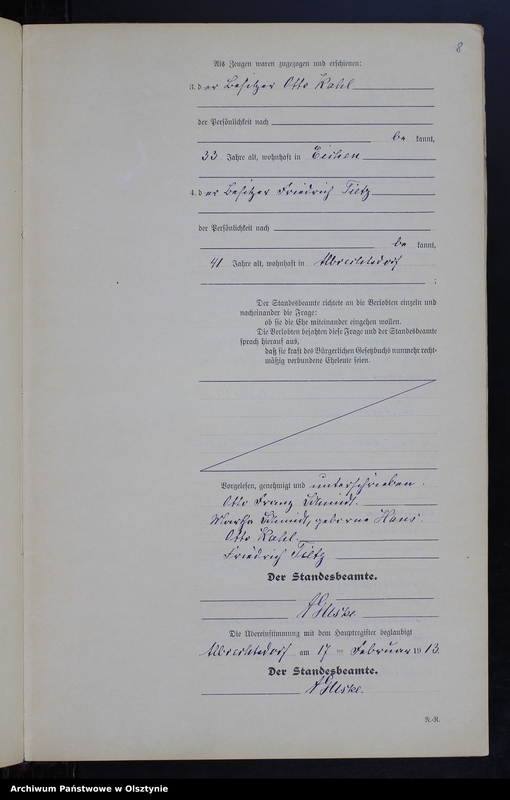 8
Als Zeugen waren zugezogen und erschienen:
3. der Besitzer Otto Kahl
der Persönlichkeit nach
be kannt,
33 Jahre alt, wohnhaft in Eichen
4. der Besitzer Friedrich Tietz
der Persönlichkeit nach
be kannt,
41 Jahre alt, wohnhaft in Albrechtsdorf
;
Der Standesbeamte richtete an die Verlobten einzeln und
nacheinander die Frage:
ob sie die Ehe miteinander eingehen wollen.
Die Verlobten bejahten diese Frage und der Standesbeamte
sprach hierauf aus,
daß sie kraft des Bürgerlichen Gesetzbuchs nunmehr recht-
mäßig verbundene Eheleute seien.
Vorgelesen, genehmigt und unterschrieben.
Otto Franz Schmidt.
Martha Schmidt, geborene Hans.
Otto Kahl.
Friedrich Tietz
Der Standesbeamte.
Die Übereinstimmung mit dem Hauptregister beglaubigt
Albrechtsdorf am 17 ten Februar 1913.
Der Standesbeamte.
N.-R.
Archiwum Państwowe w Olsztynie